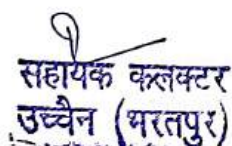 सहायक कलक्टर
उच्चैन (भरतपुर)